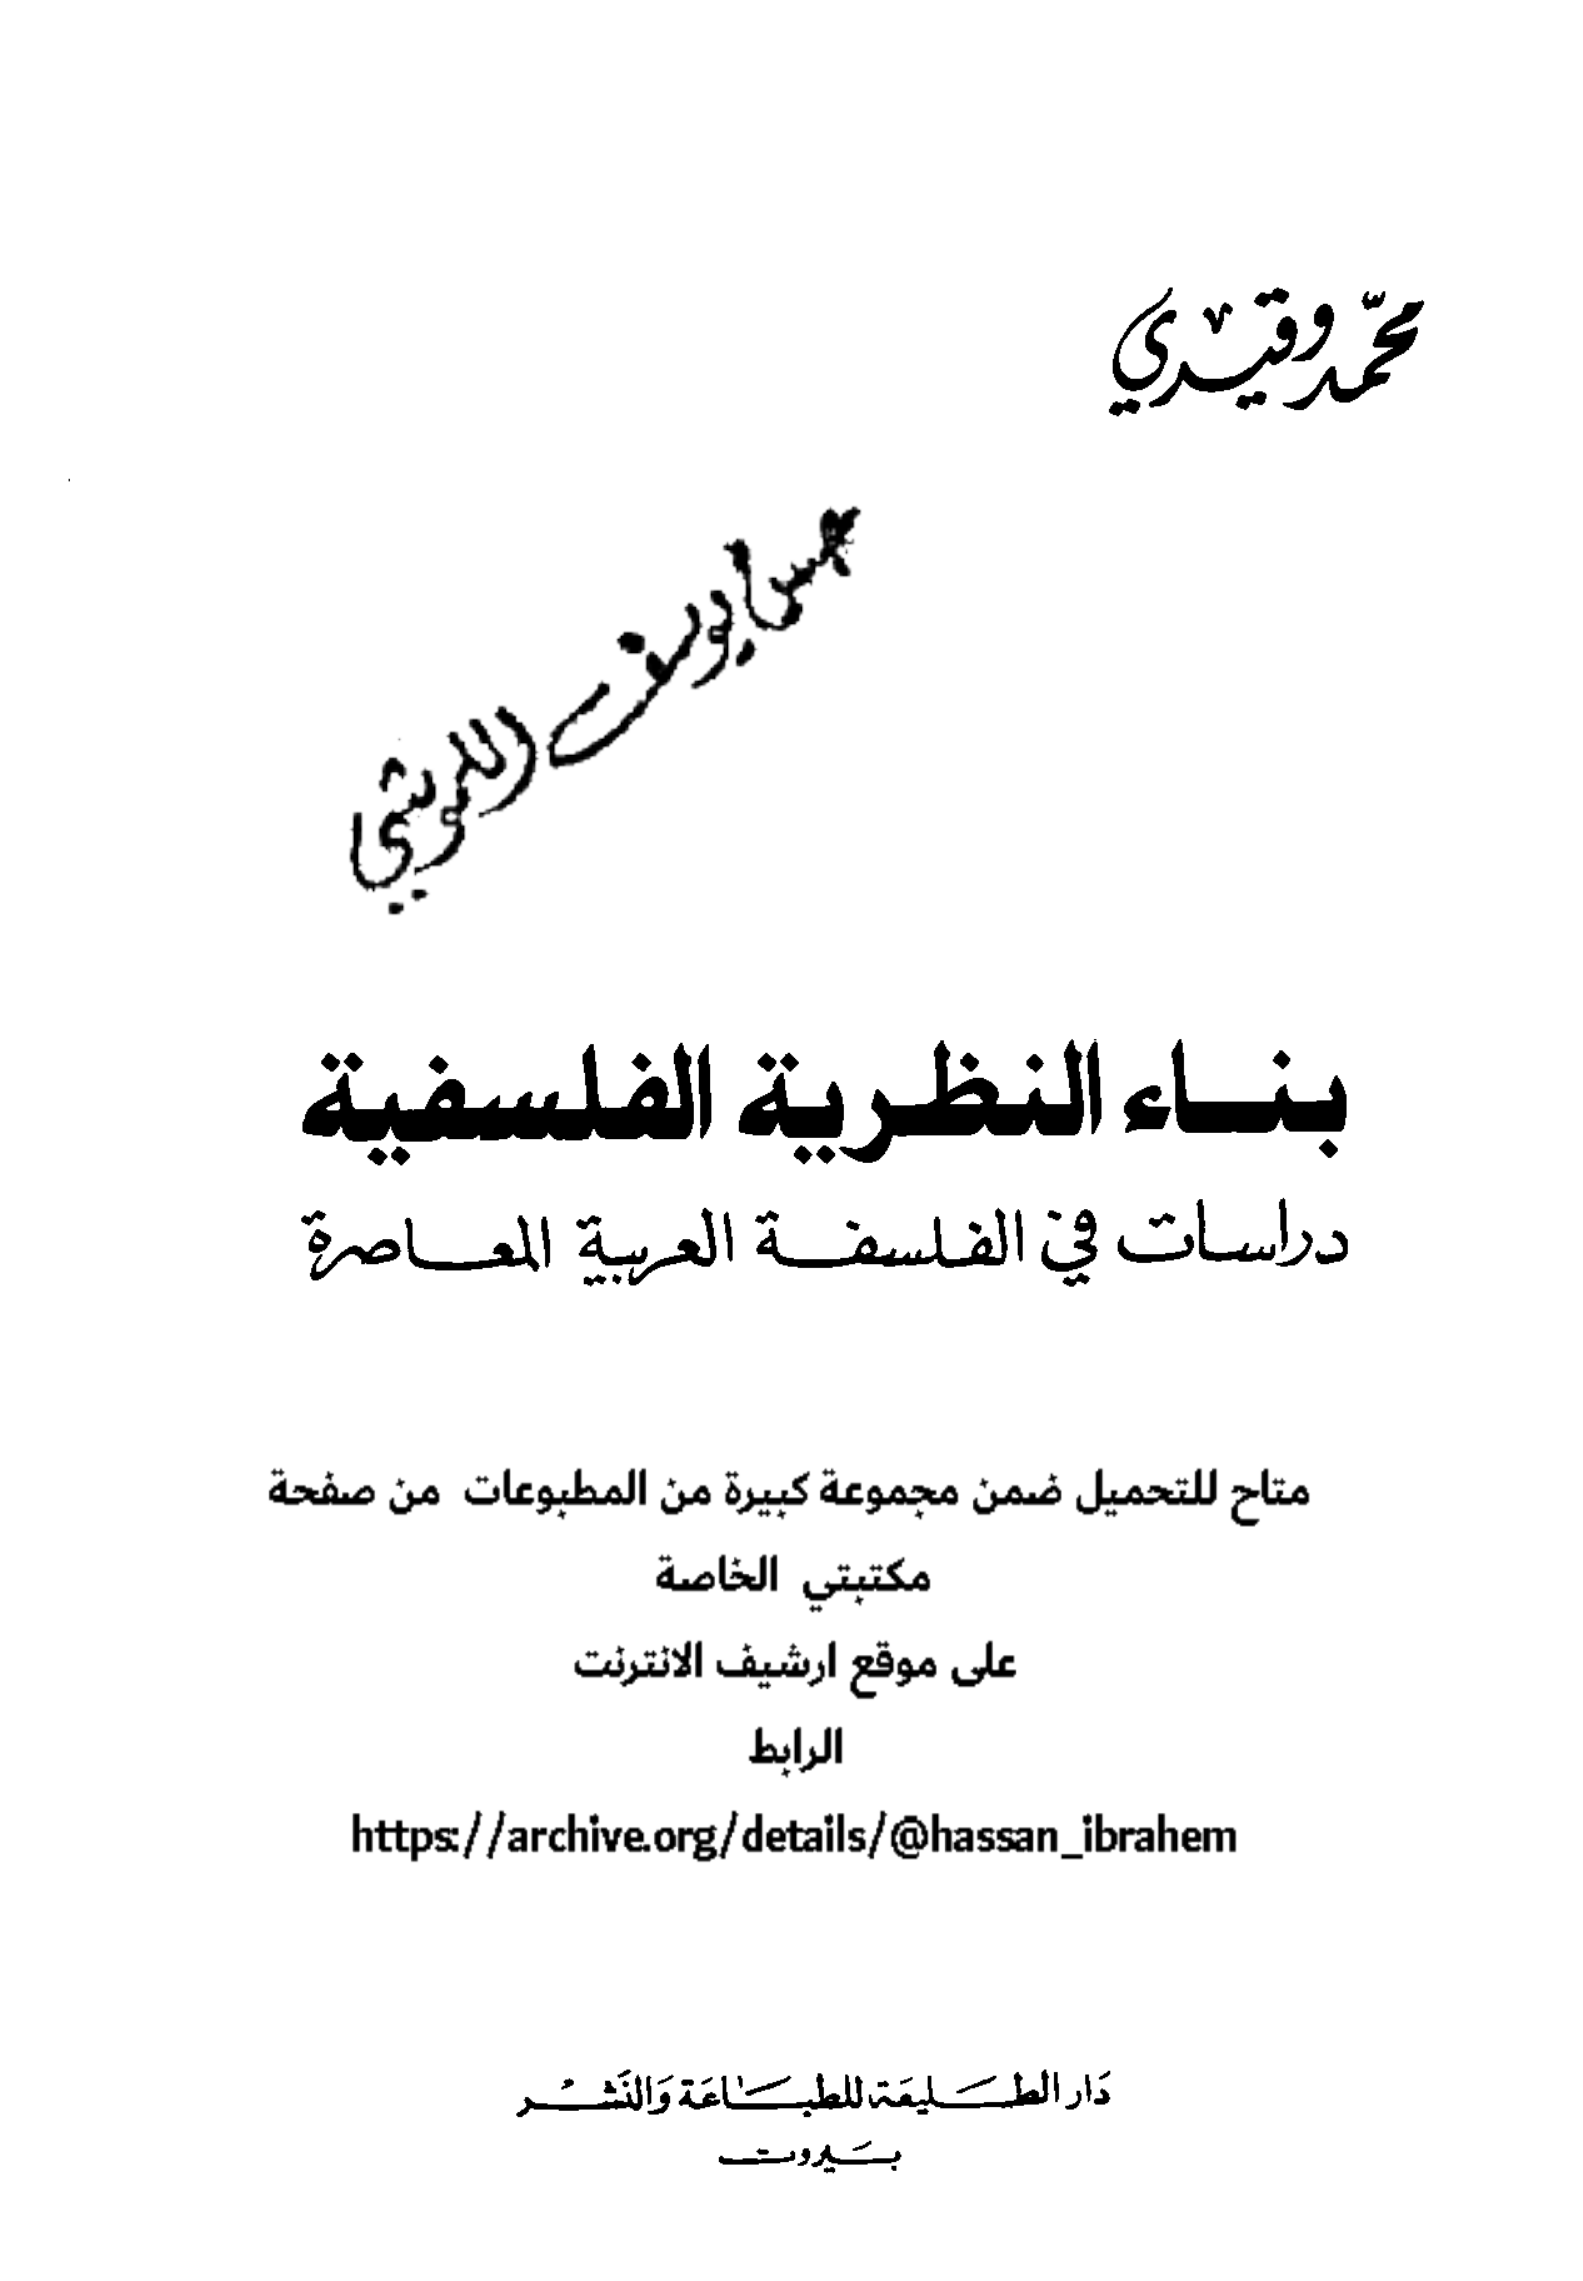 محمّد وقيدي
يوسف
بنـاء النظرية الفلسفية
دراسات في الفلسفة العربية المعاصرة
متاح للتحميل ضمن مجموعة كبيرة من المطبوعات من صفحة
مكتبتي الخاصة
على موقع ارشيف الانترنت
الرابط
https://archive.org/details/@hassan_ibrahem
دَار الطـليعَة للطبـَاعَة وَالنَشـر
بَيروت